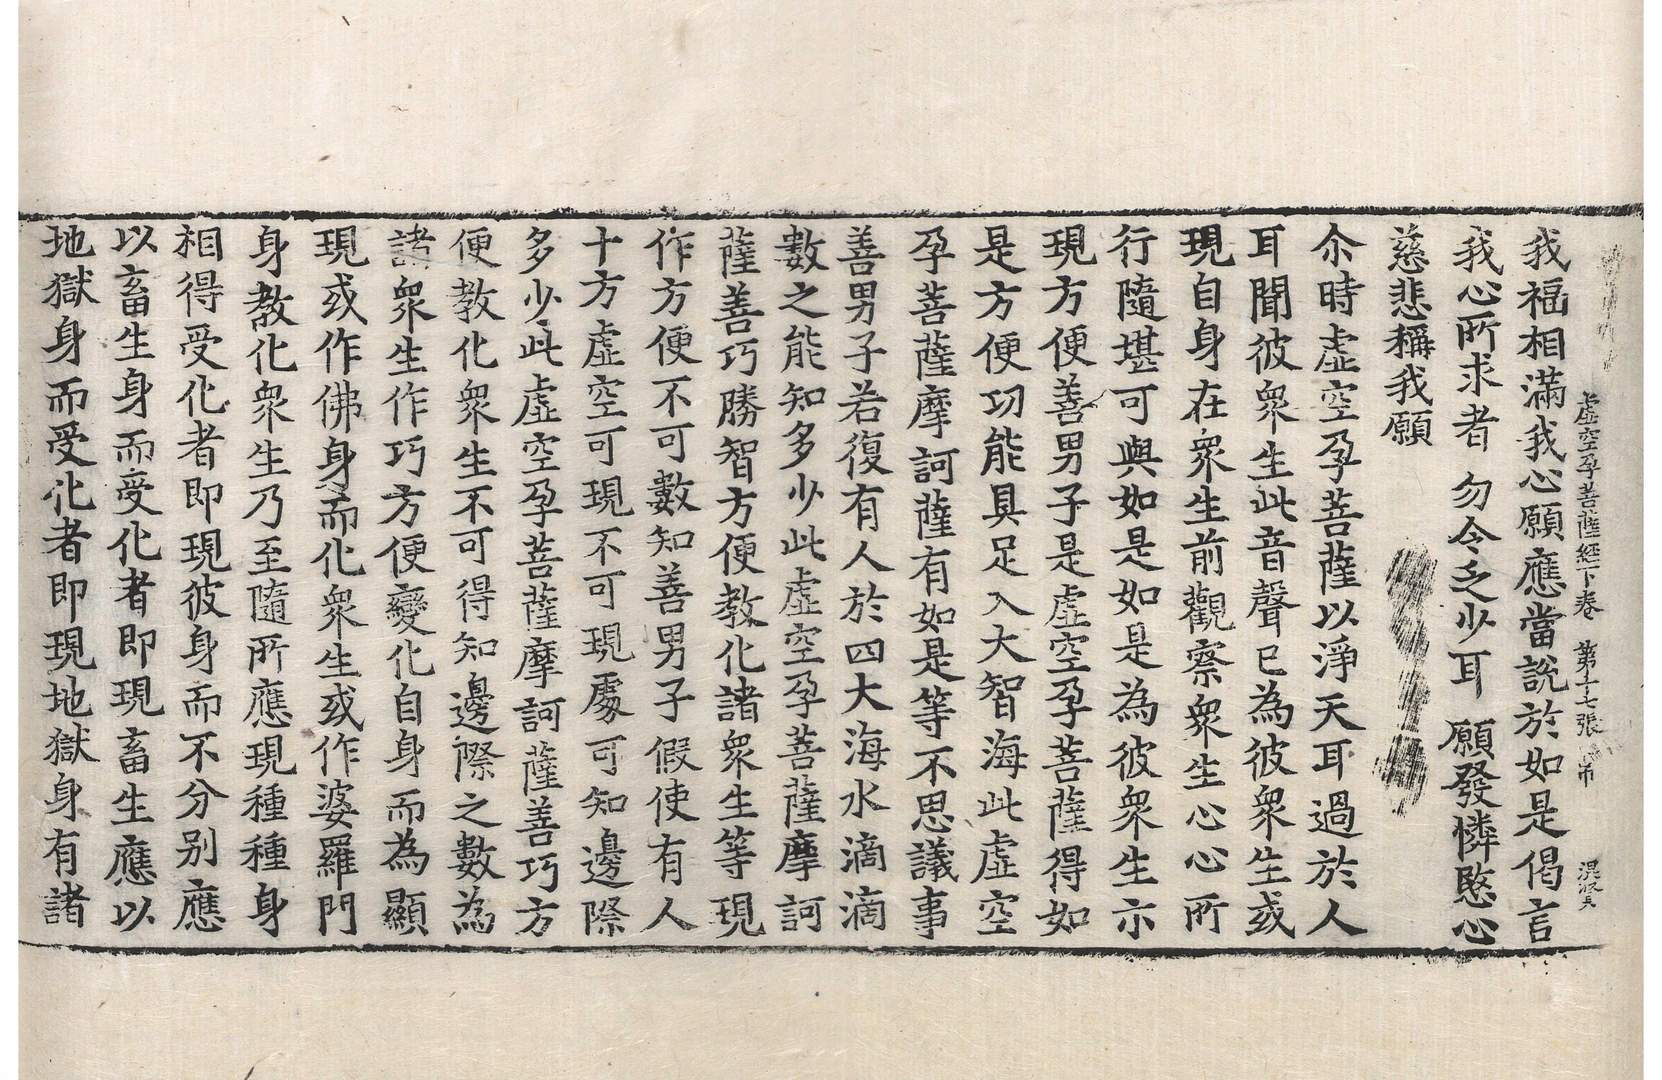 虛空孕菩薩經下卷　第十七張　帀
我福相滿我心願應當說於如是偈言
我心所求者　勿令乏少耳　願發憐愍心
慈悲稱我願
尒時虛空孕菩薩以淨天耳過於人
耳聞彼衆生此音聲已為彼衆生或
現自身在衆生前觀察衆生心心所
行隨堪可與如是如是為彼衆生示
現方便善男子是虛空孕菩薩得如
是方便功能具足入大智海此虛空
孕菩薩摩訶薩有如是等不思議事
善男子若復有人於四大海水滴滴
數之能知多少此虛空孕菩薩摩訶
薩善巧勝智方便教化諸衆生等現
作方便不可數知善男子假使有人
十方虛空可現不可現處可知邊際
多少此虛空孕菩薩摩訶薩善巧方
便教化衆生不可得知邊際之數為
諸衆生作巧方便變化自身而為顯
現或作佛身而化衆生或作婆羅門
身教化衆生乃至隨所應現種種身
相得受化者即現彼身而不分別應
以畜生身而受化者即現畜生應以
地獄身而受化者即現地獄身有諸